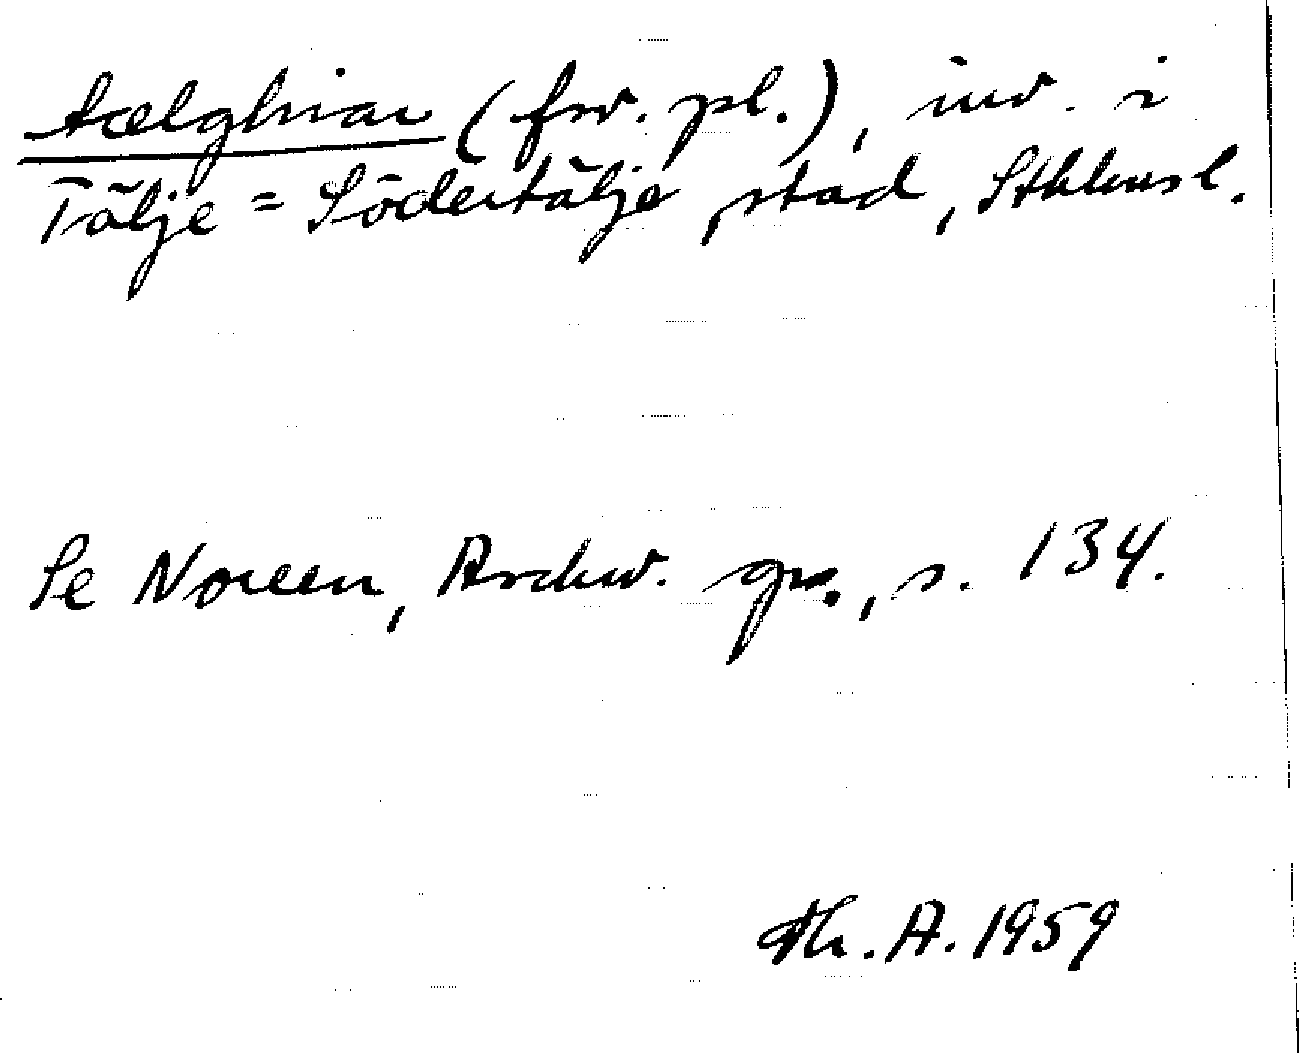 tælghiar (fsv. pl.), inv. i
Tälje = Södertälje, stad, Sthlmsl.
Se Noreen, Aschw. gr., s. 134.
Th. A. 1959